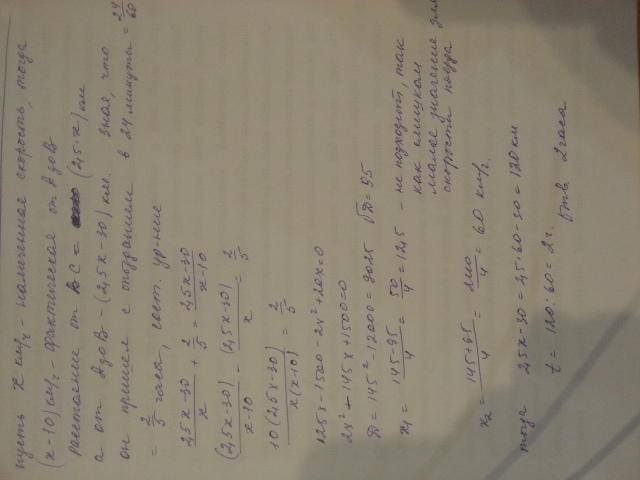 пусть x км/ч - назначенная скорость, тогда
(x-10) км/ч - фактическая от A до B
расстояние от A до C = (2,5·x) км
а от A до B - (2,5x-30) км. Зная, что
он пришел с опозданием в 24 минуты = 24/60
= 2/5 часа, сост. ур-ние
(2,5x-30)/x + 2/5 = (2,5x-30)/(x-10)
(2,5x-30)/(x-10) - (2,5x-30)/x = 2/5
10(2,5x-30)/(x(x-10)) = 2/5
125x-1500-2x²+20x=0
2x²-145x+1500=0
D=145²-12000=9025 √D=95
x₁ = (145-95)/4 = 50/4 = 12,5 - не подходит, так
как слишком
малое значение для
скорости поезда
x₂ = (145+95)/4 = 240/4 = 60 км/ч.
тогда 2,5x-30=2,5·60-30=120 км
t = 120:60=2ч. Отв 2 часа